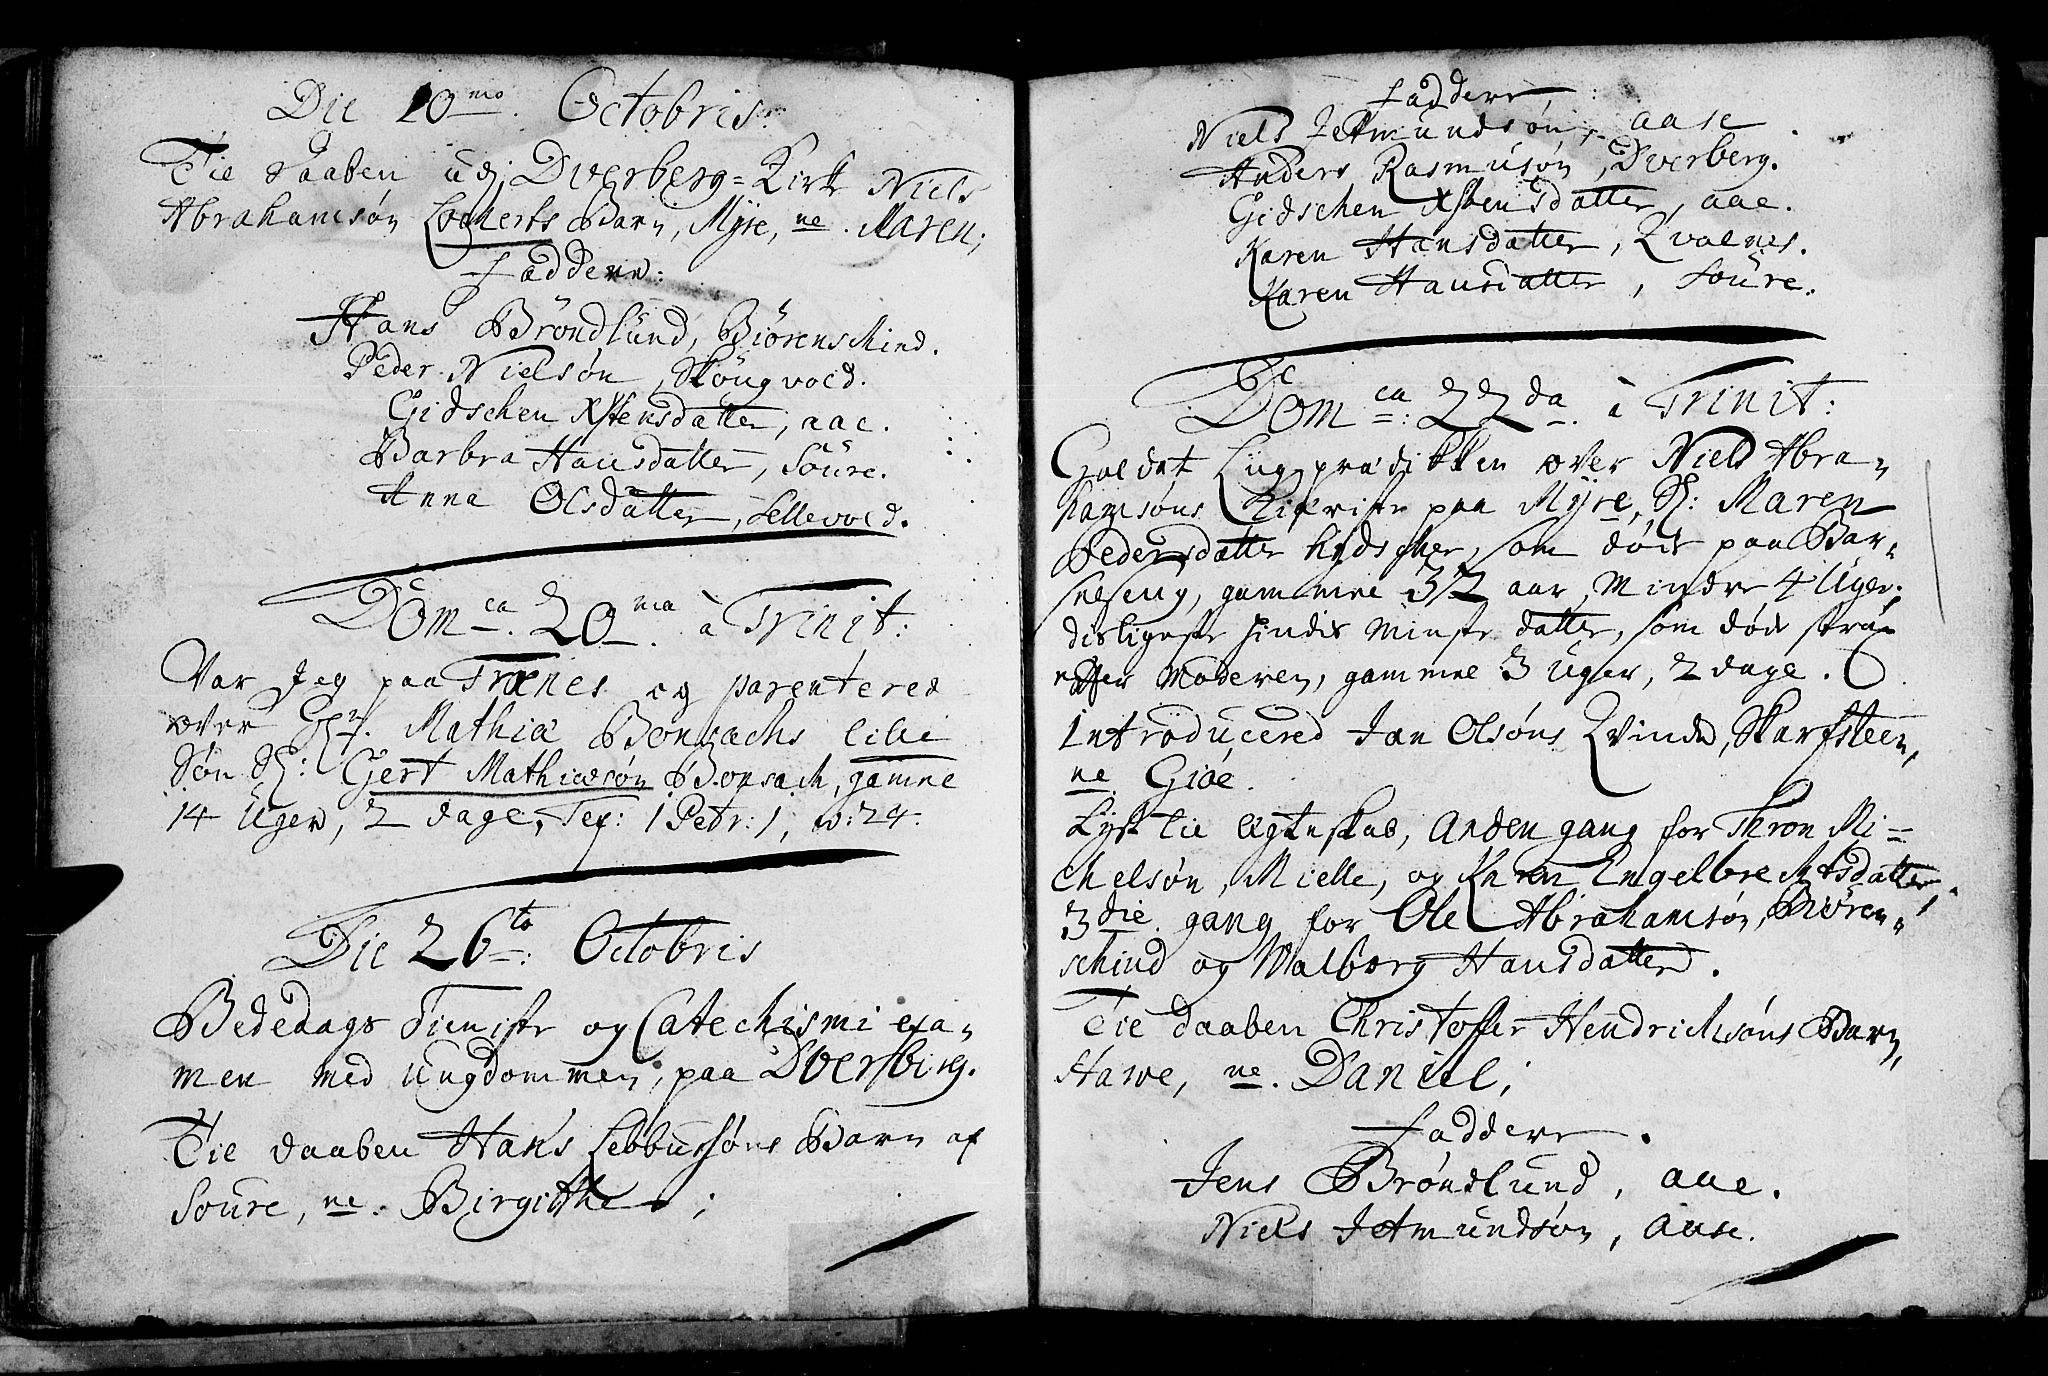 Die 10mo. Octobris:
Til daaben udj Dverberg=Kirke Niels
Abrahamsøn Lockerts Barn, Myre, ne. Maren;
Faddere:
Hans Bröndlund, Biörenschind.
Peder Nielsøn, Skougvold.
Gidschen Xstensdatter, aae.
Barbra Hansdatter, Söure.
Anna Olsdatter, Sellevold.
Domca. 20ma. à Trinit:
Var Jeg paa Trænes og parentered
over Mathiæ Bonsachs lille
Søn Sl: Gert Mathiæsøn Bonsach, gamle
14 Uger, 2 dage, Tex: 1 Petr: 1, v: 24.
Die 26to: Octobris
Bededags Tieniste og Catechismi exa-
men med Ungdommen, paa Dverberg.
Til daaben Hans Lebbursøns Barn af
Söure, ne. Birgitthe;
Faddere:
Niels Jetmundsøn, aase.
Anders Rasmusøn, Dverberg.
Gidschen Xstensdatter, aae.
Karen Hansdatter, Qvalnes.
Karen Hansdatter, Söure.
Domca: 22da. à Trinit:
Holdet Liigprædikken over Niels Abra-
hamsøns Hustru paa Myre, Sl: Maren
Pedersdatter som døde paa Bar-
selseng, gammel 32 aar, mindre 4 Uger;
disligeste hindes minste datter, som døde strax
effter Moderen, gammel 3 Uger, 2 dage.
Introducered Jan Olsøns Qvinde, Skarfsteen,
ne. Giøe.
Lyst til Egteskab, anden gang for Thron Mi-
chelsøn, Mielle, og Karen Engelbrechtsdatter,
3die. gang for Ole Abrahamsøn, Biören-
schind og Malborg Hansdatter.
Til daaben Christoffer Hendrichsøns Barn,
Hawe, ne. Daniel;
Faddere.
Jens Brøndlund, aae.
Niels Jetmundsøn, aase.